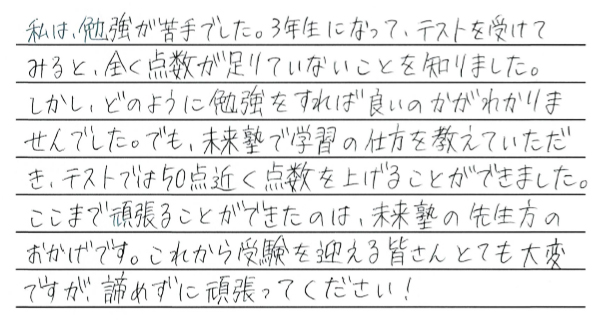 私は、勉強が苦手でした。3年生になって、テストを受けて
みると、全く点数が足りていないことを知りました。
しかし、どのように勉強をすれば良いのかがわかりま
せんでした。でも、未来塾で学習の仕方を教えていただ
き、テストでは50点近く点数を上げることができました。
ここまで頑張ることができたのは、未来塾の先生方の
おかげです。これから受験を迎える皆さんとても大変
ですが、諦めずに頑張ってください！